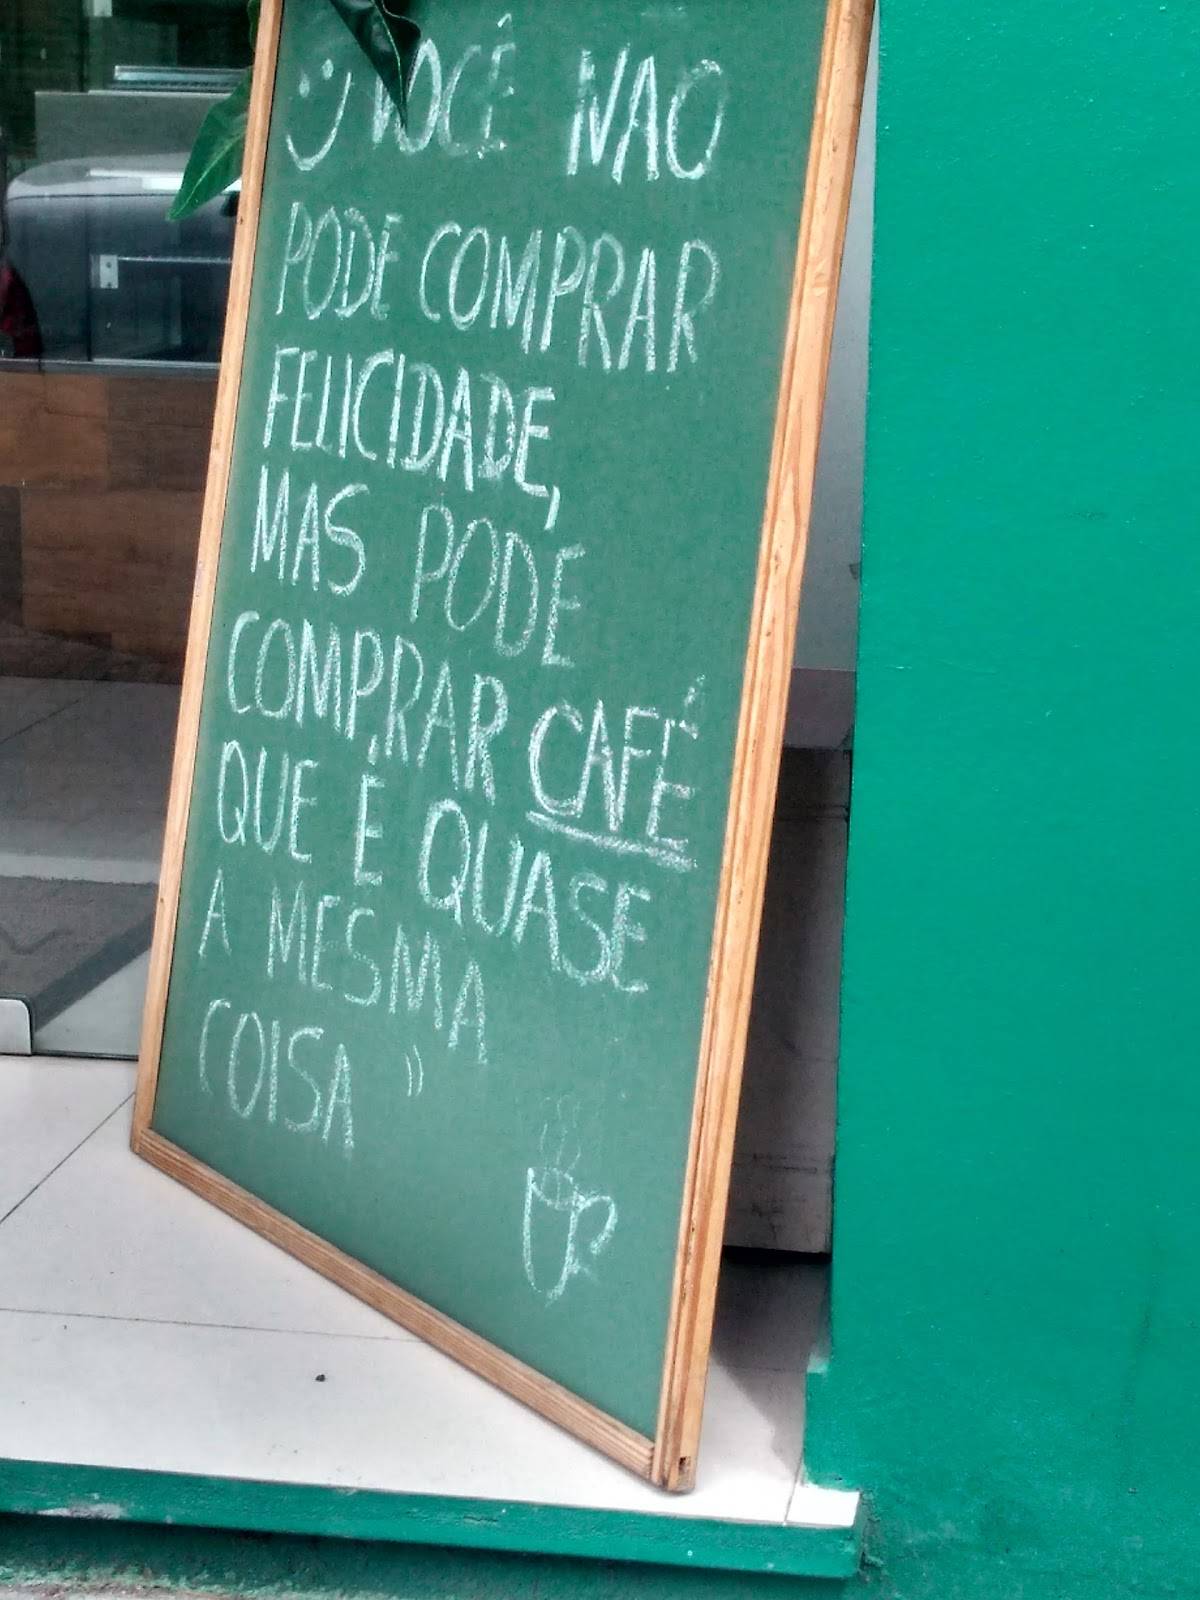 VOCÊ NAO
PODE COMPRAR
FELICIDADE,
MAS PODE
COMPRAR CAFÉ
QUE É QUASE
A MESMA
COISA "